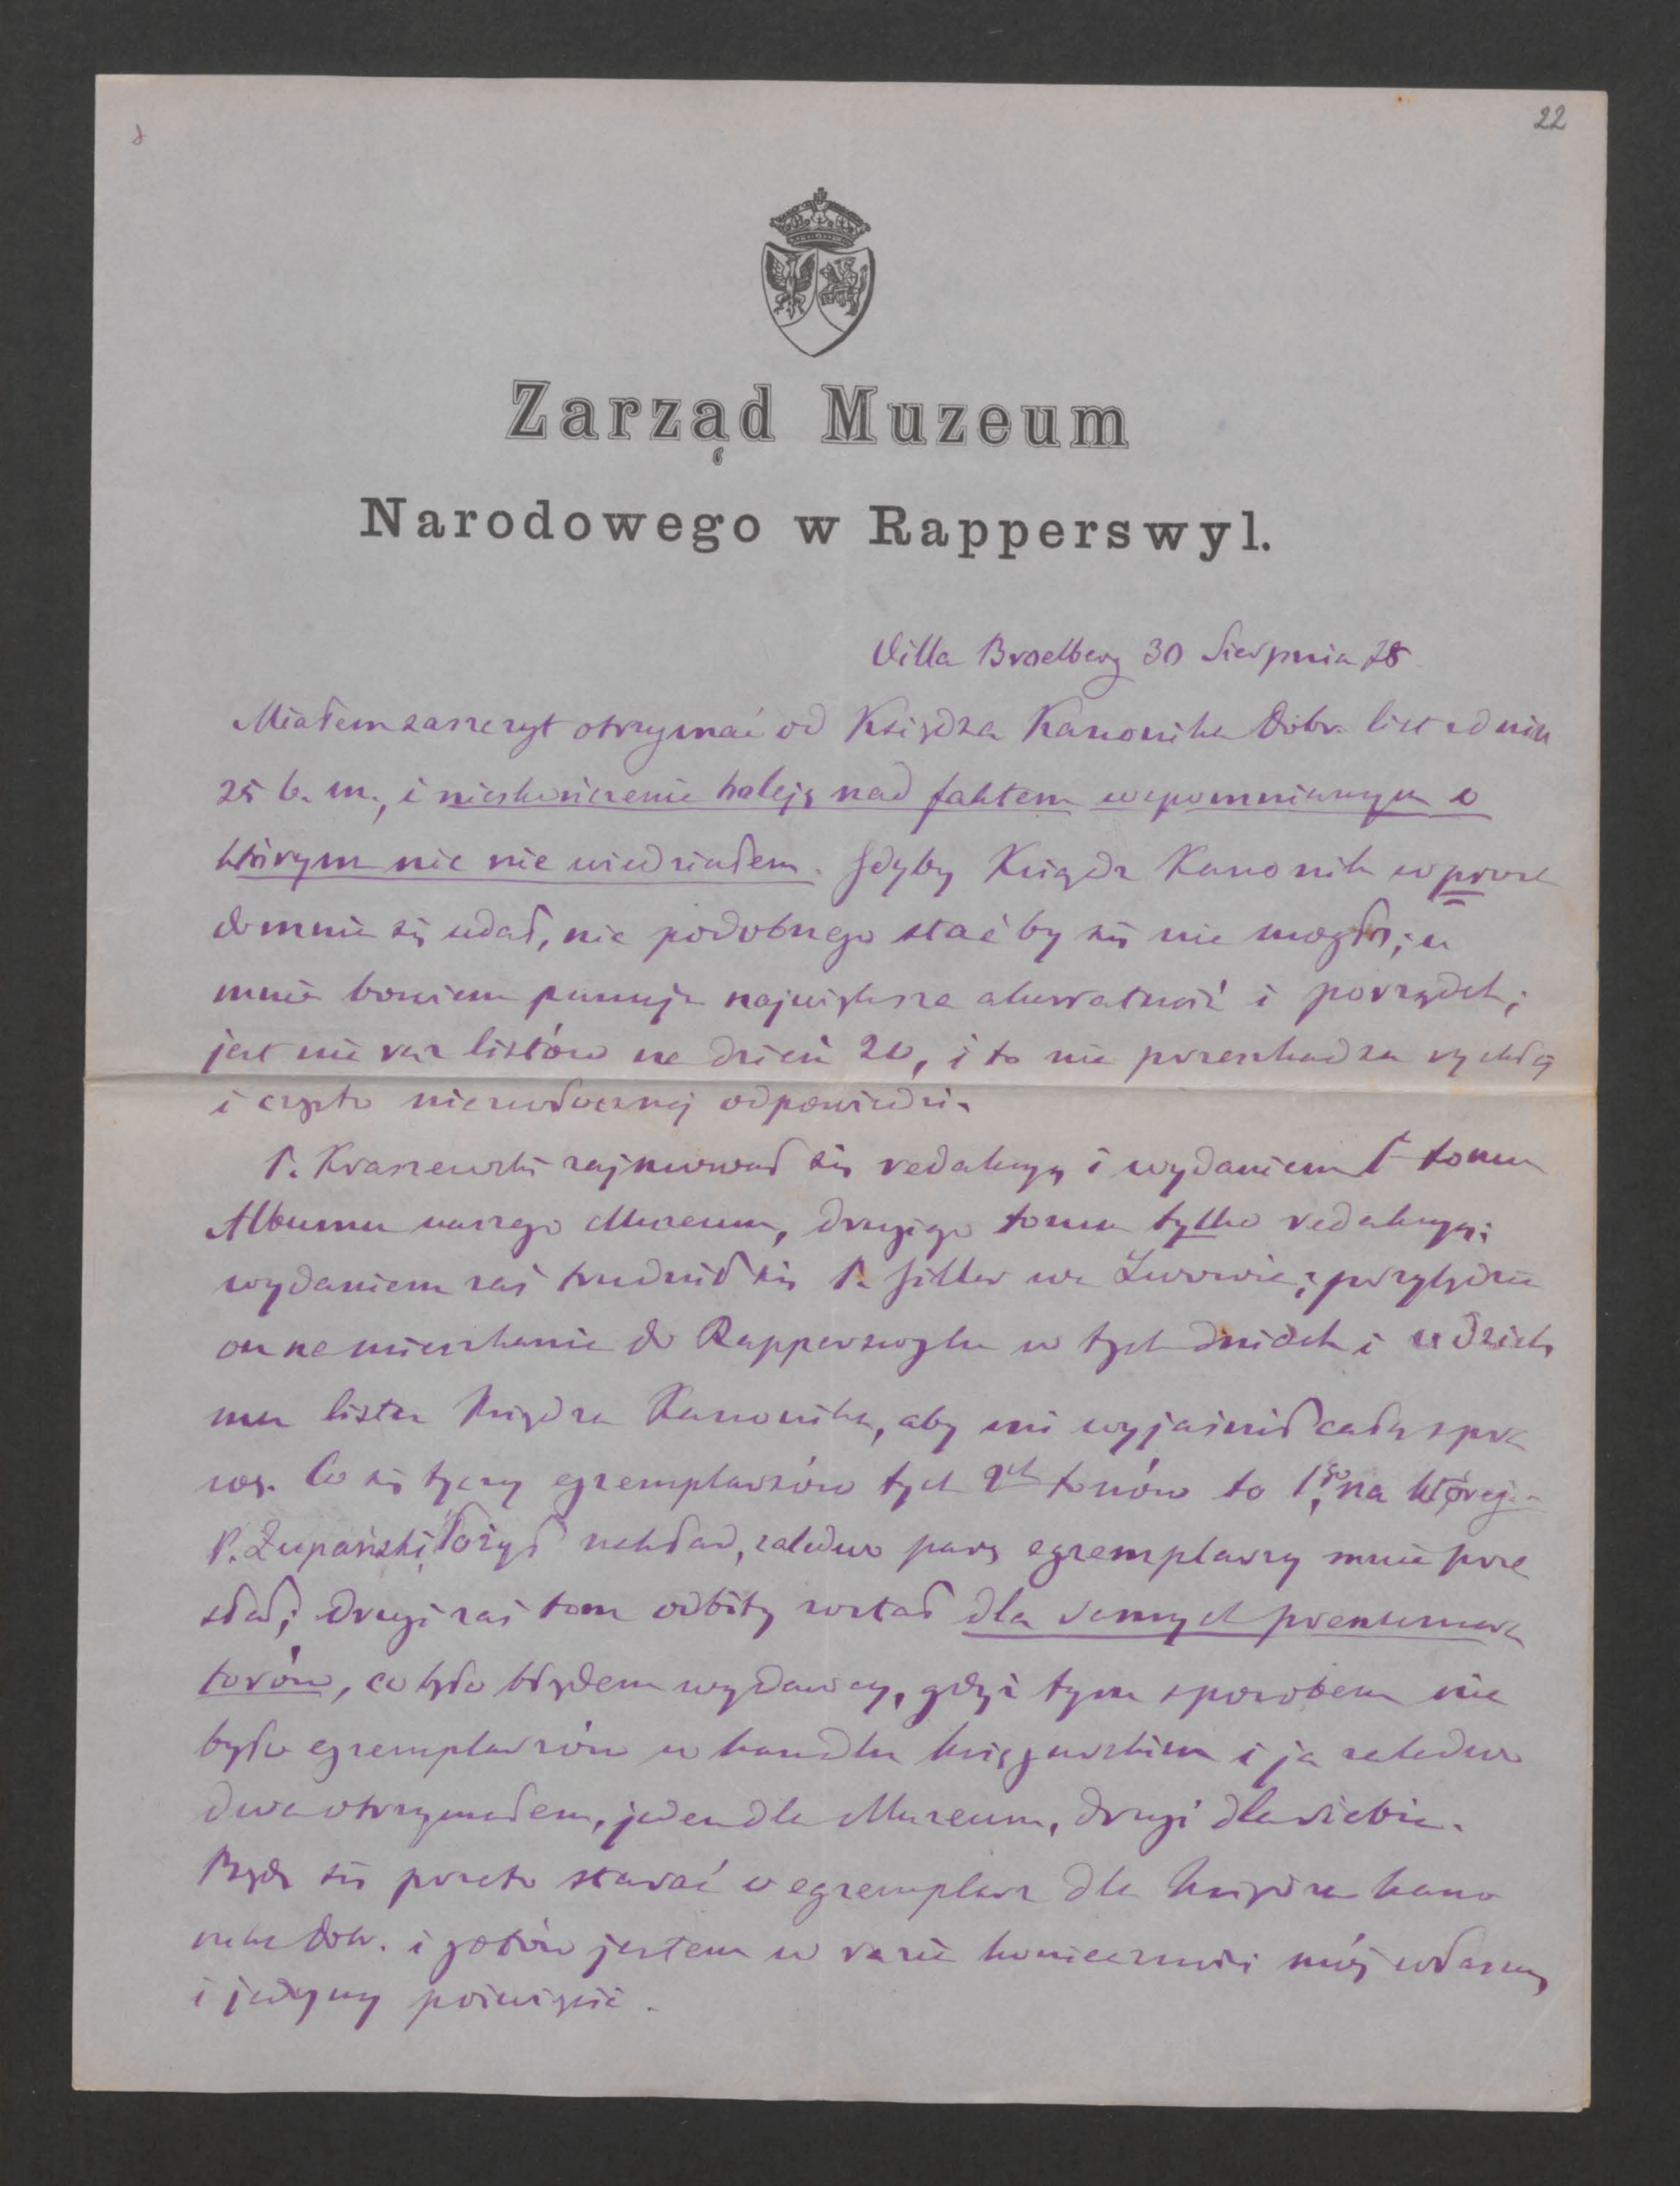 22
Zarząd Muzeum
Narodowego w Rapperswyl.
Villa Broelberg 30 Sierpnia 78
Miałem zaszczyt otrzymać od Księdza Kanonika Dobr. list z dnia
25 b. m., i nieskończenie boleję nad faktem wspomnianym o
którym nic nie wiedziałem. Gdyby Ksiądz Kanonik wprost
do mnie się udał, nic podobnego stać by się nie mogło; u
mnie bowiem panuje największa akuratność i porządek;
jest nie raz listów na dzień 20, i to nie przeszkadza rychłéj
i często niezwłocznéj odpowiedzi.
P. Kraszewski zajmował się redakcyą i wydaniem I tomu
Albumu naszego Muzeum, drugiego tomu tylko redakcyą;
wydaniem zaś trudnił się P. Giller we Lwowie; przybędzie
on na mieszkanie do Rapperswylu w tych dniach i udzielę
mu listu Księdza Kanonika, aby mi wyjaśnił całą spra
wę. Co się tyczy egzemplarzów tych 2ch tomów to 1go, na którego
P. Żupański łożył nakład, zaledwo parę egzemplarzy mnie prze
słał; drugi zaś tom odbity został dla samych prenumera
torów, co było błędem wydawcy, gdyż tym sposobem nie
było egzemplarzów w handlu księgarskim i ja zaledwo
dwa otrzymałem, jeden dla Muzeum, drugi dla siebie.
Będę się przeto starać o egzemplarz dla Księdza Kano
nika Dobr. i gotów jestem w razie konieczności mój własny
i jedyny poświęcić.